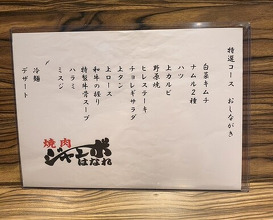 特選コース　おしながき
白菜キムチ
ナムル2種
ハツ
上カルビ
野原焼
ヒレステーキ
チョレギサラダ
上タン
上ロース
和牛の握り
特製牛骨スープ
ハラミ
ミスジ
冷麺
デザート
焼肉
ジャンボ
はなれ